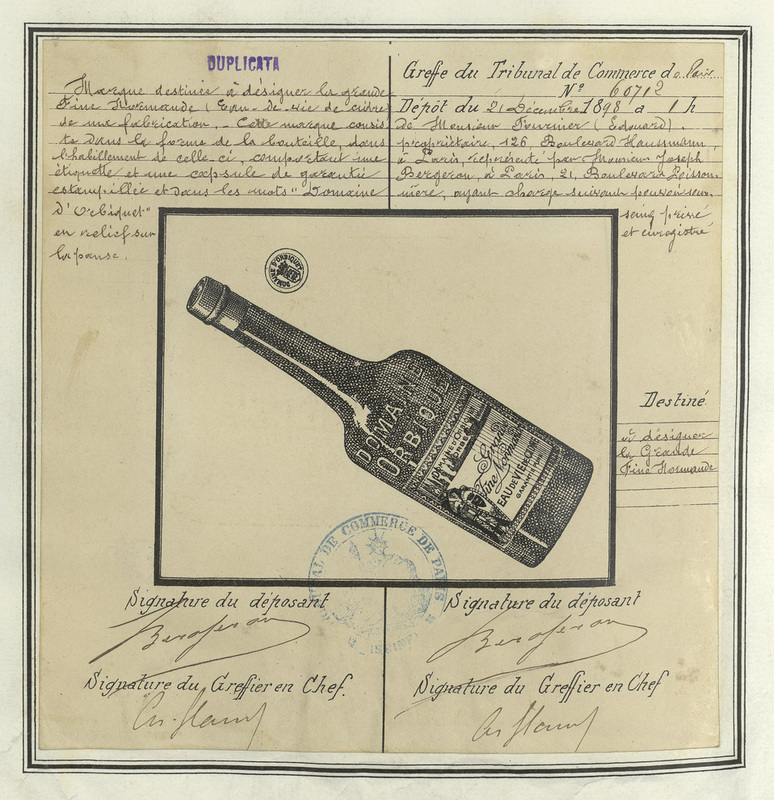 DUPLICATA
Marque destinée à désigner la grande
Fine Normande (Eau-de-vie de cidre)
de ma fabrication. - Cette marque consis
te dans la forme de la bouteille, dans
l'habillement de celle-ci, comportant une
étiquette et une capsule de garantie
estampillée et dans les mots "Domaine
d'Orbiquet"
en relief sur
la panse.
Greffe du Tribunal de Commerce de Paris
N° 60712
Dépôt du 21 Décembre 1898 à 1 h
de Monsieur Fournier (Edouard),
propriétaire, 126, Boulevard Haussmann,
à Paris, représenté par Monsieur Joseph
Bergeron, à Paris, 21, Boulevard Poisson
nière, ayant charge suivant pouvoir sous
seing privé
et enregistré
DOMAINE D'ORBIQUET
DOMAINE
ORBIQUE
Grande
Fine Normande
EAU DE VIE
GARANTI
Destiné
à désigner
la Grande
Fine Normande
TRIBUNAL DE COMMERCE DE PARIS
Signature du déposant
Bergeron
Signature du Greffier en Chef.
Signature du déposant
Bergeron
Signature du Greffier en Chef